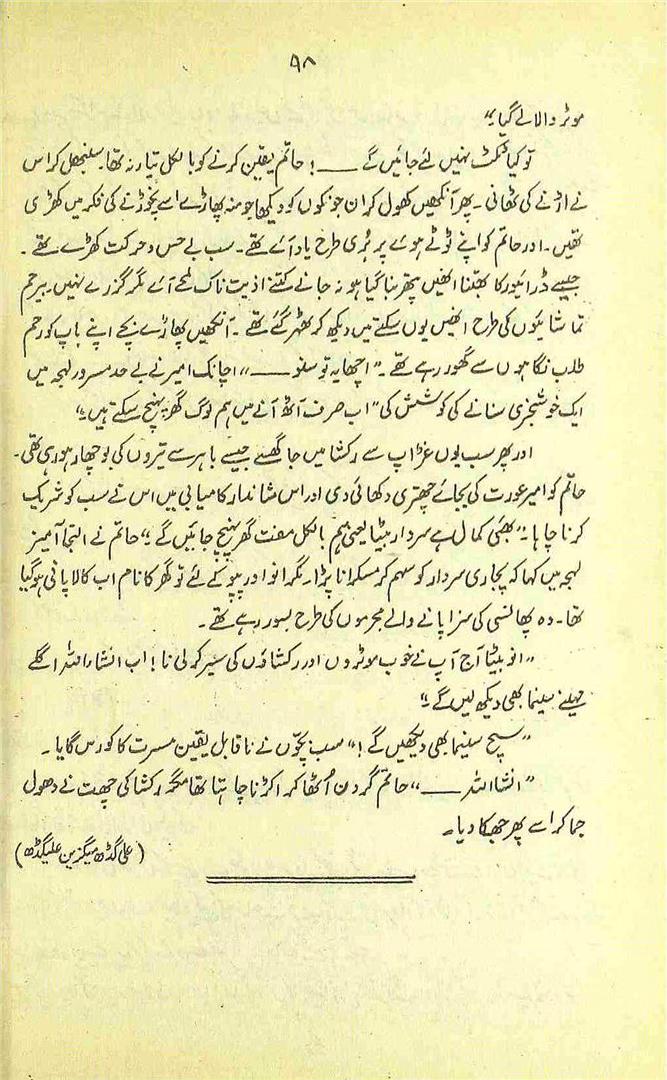 ۹۸
موٹر والا لے گیا"
تو کیا ٹکٹ نہیں لئے جائیں گے ——! حاتم یقین کرنے کو بالکل تیار نہ تھا۔ سنبھل کر اس
نے اڑنے کی ٹھانی۔ پھر آنکھیں کھول کر ان جونکوں کو دیکھا جو منہ پھاڑے اسے نچوڑنے کی فکر میں کھڑی
تھیں۔ اور حاتم کو اپنے ٹوٹے ہوئے پر بُری طرح یاد آئے تھے۔ سب بے حس و حرکت کھڑے تھے۔
جیسے ڈرائیور کا بھتنا انھیں پتھر بنا گیا ہو نہ جانے کتنے اذیت ناک لمحے آئے مگر گزرے نہیں۔ بیرحم
تماشائیوں کی طرح انھیں یوں سکتے میں دیکھ کر ٹھہر گئے تھے۔ آنکھیں پھاڑے بچے اپنے باپ کو رحم
طلب نگاہوں سے گھور رہے تھے۔ "اچھا یہ تو سنو ——" اچانک امیر نے بے حد مسرور لہجہ میں
ایک خوشخبری سنانے کی کوشش کی "اب صرف آٹھ آنے میں ہم لوگ گھر پہنچ سکتے ہیں"
اور پھر سب یوں غڑاپ سے رکشا میں جا گھسے جیسے باہر سے تیروں کی بوچھار ہو رہی تھی۔
حاتم کو امیر عورت کی بجائے چھتری دکھائی دی اور اس شاندار کامیابی میں اس نے سب کو شریک
کرنا چاہا۔" بھئی کمال ہے سردار بیٹا یعنی ہم بالکل مفت گھر پہنچ جائیں گے" حاتم نے التجا آمیز
لہجہ میں کہا کہ بچاری سردار کو سہم کر مسکرانا پڑا۔ مگر انو اور پپو کے لئے تو گھر کا نام اب کالا پانی ہو گیا
تھا۔ وہ پھانسی کی سزا پانے والے مجرموں کی طرح بسور رہے تھے۔
"انو بیٹا آج آپ نے خوب موٹروں اور رکشاؤں کی سیر کر لی نا! اب انشاء اللہ اگلے
مہینے سینما بھی دیکھ لیں گے"
"سچ سینما بھی دیکھیں گے!" سب بچّوں نے ناقابل یقین مسرت کا کورس گایا۔
"انشا اللہ ——" حاتم گردن اُٹھا کر اکڑنا چاہتا تھا مگر رکشا کی چھت نے دھول
جما کر اسے پھر جھکا دیا۔
(علی گڈھ میگزین علیگڈھ)